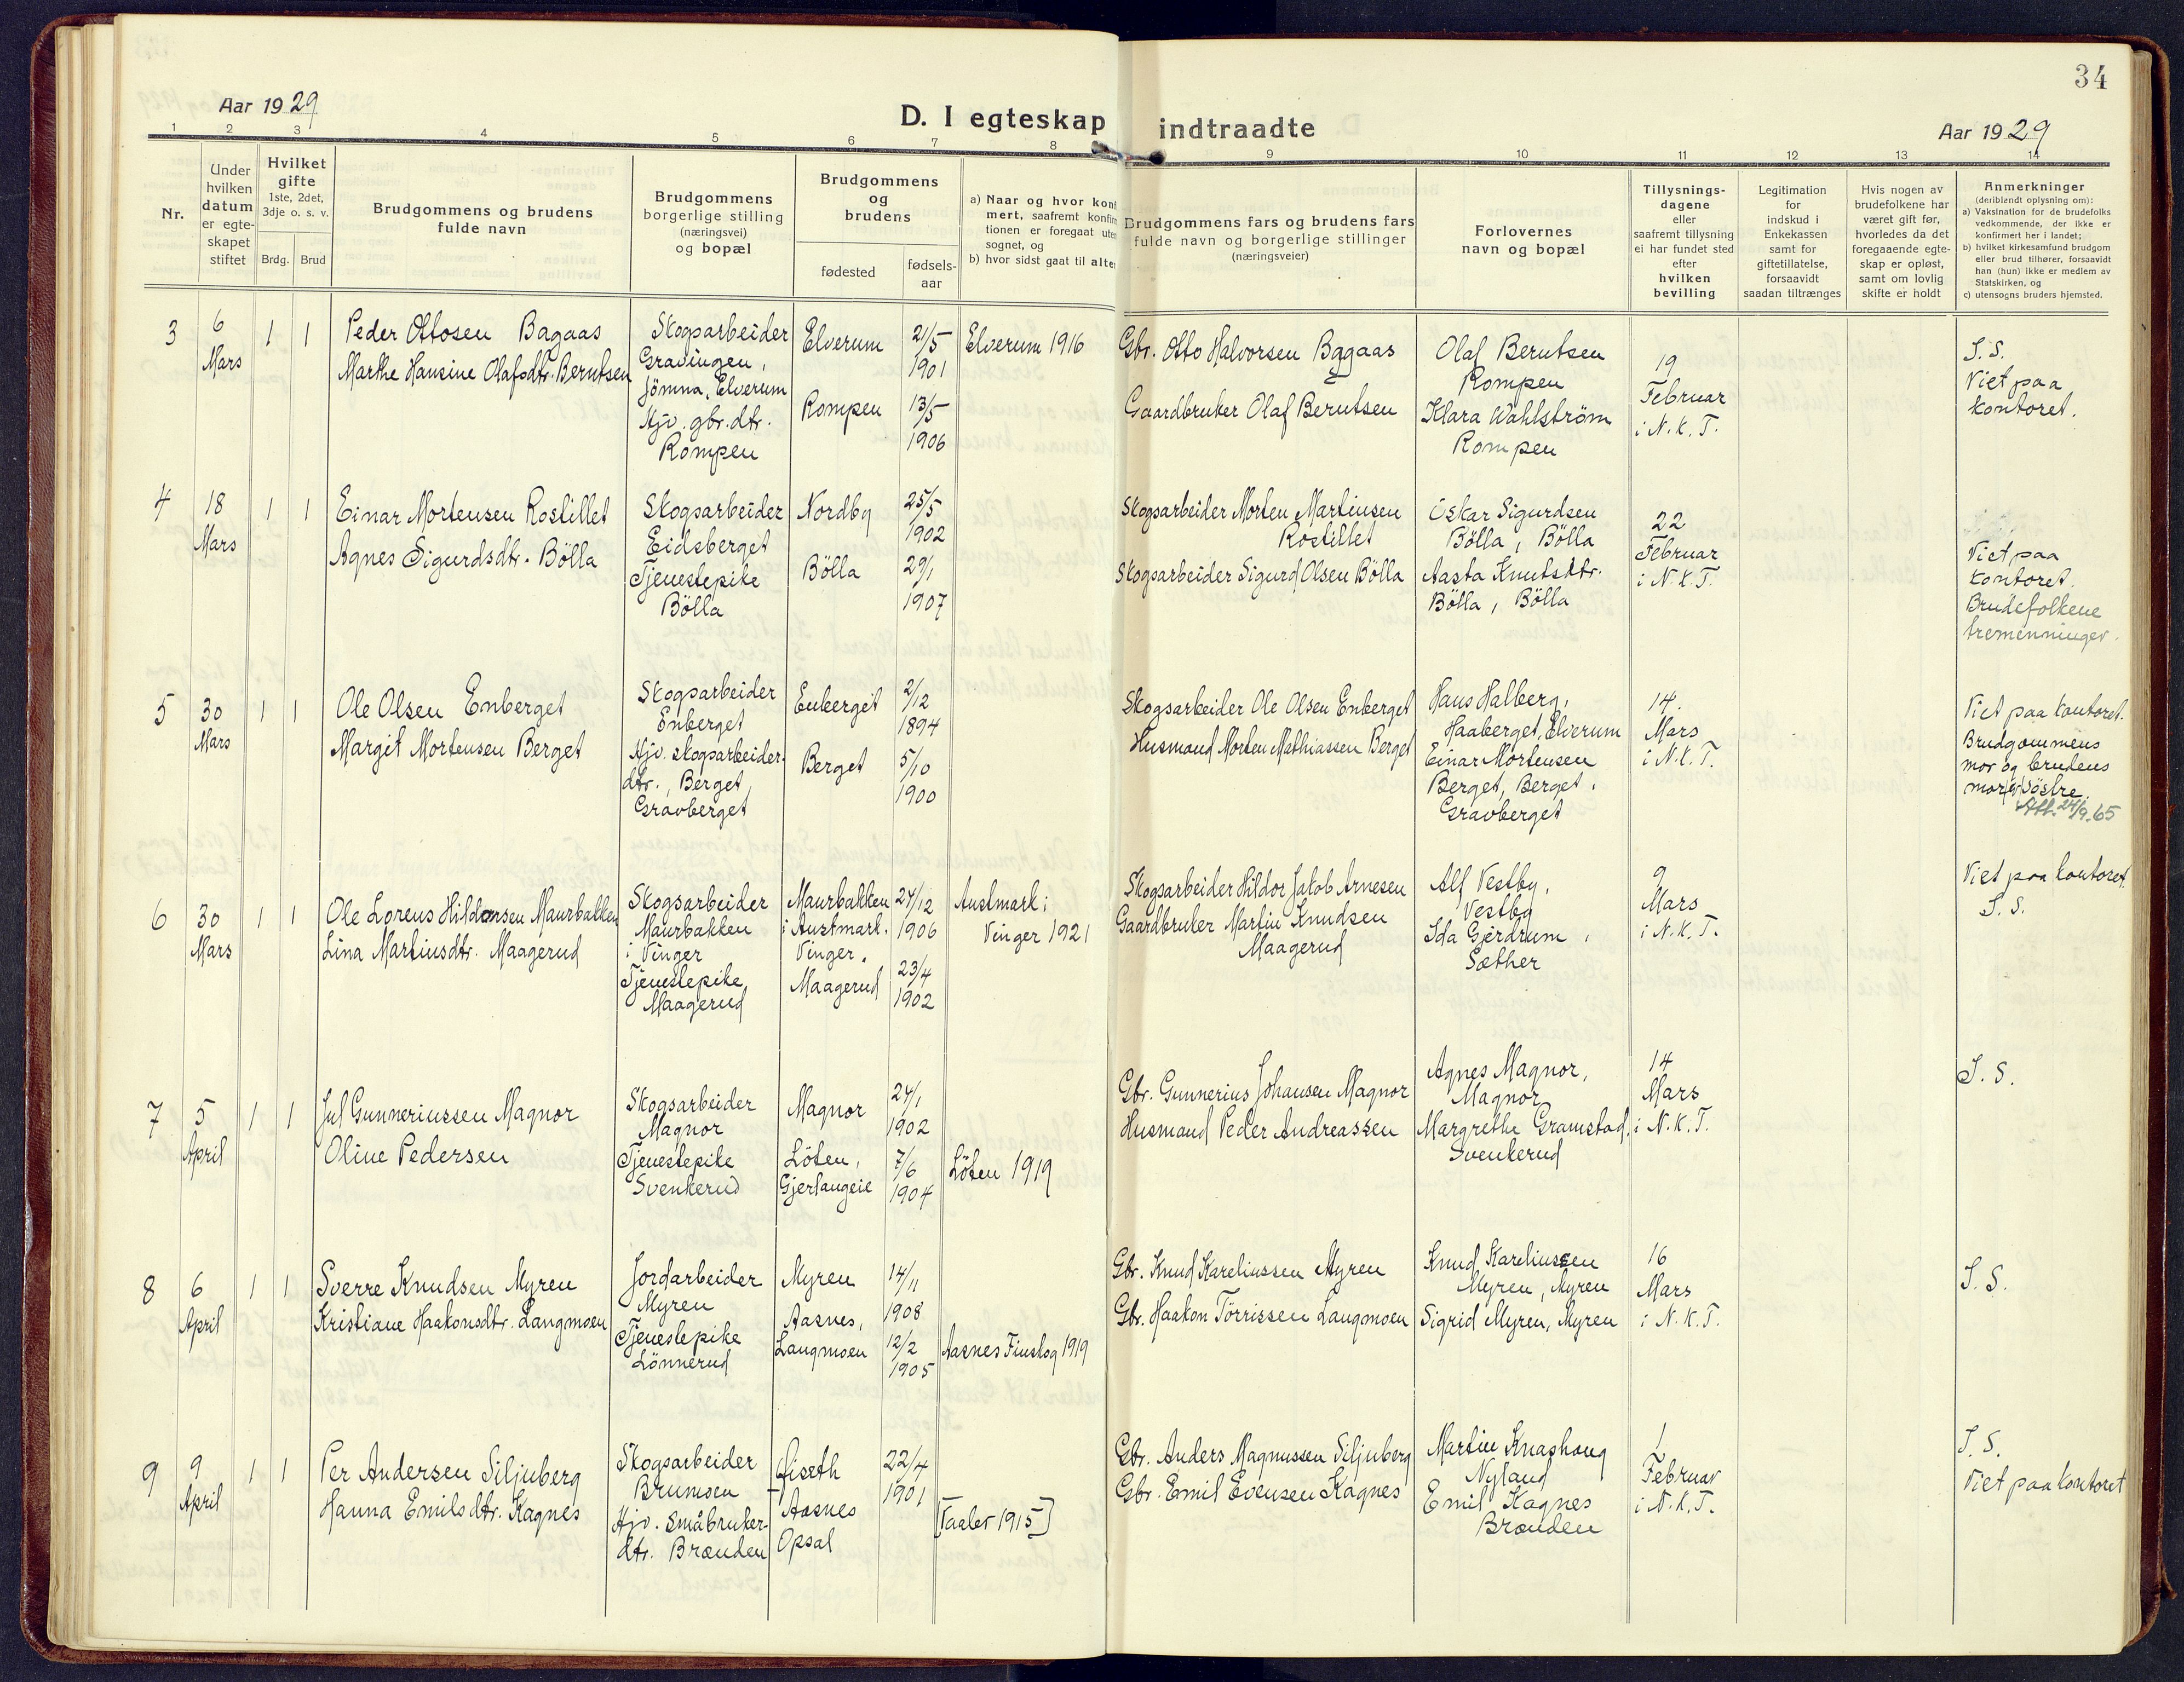 34
Aar 1929
D. I egteskap indtraadte
Aar 1929
1 2 3 4 5 6 7 8 9 10 11 12 13 14
Nr.
Under
hvilken
datum
er egte-
skapet
stiftet
Hvilket
gifte
1ste, 2det,
3dje o. s. v.
Brdg. Brud
Brudgommens og brudens
fulde navn
Brudgommens
borgerlige stilling
(næringsvei)
og bopæl
Brudgommens
og
brudens
fødested
fødsels-
aar
a) Naar og hvor konf
mert, saafremt konfir
tionen er foregaat uten
sognet, og
b) hvor sidst gaat til alter
Brudgommens fars og brudens fars
fulde navn og borgerlige stillinger
(næringsveier)
Forlovernes
navn og bopæl
Tillysnings-
dagene
eller
saafremt tillysning
ei har fundet sted
efter
hvilken
bevilling
Legitimation
for
indskud i
Enkekassen
samt for
giftetillatelse,
forsaavidt
saadan tiltrænges
Hvis nogen av
brudefolkene har
været gift før,
hvorledes da det
foregaaende egte-
skap er opløst,
samt om lovlig
skifte er holdt
Anmerkninger
(deriblendt oplysning om):
a) Vaksination for de brudefolks
vedkommende, der ikke er
konfirmert her i landet;
b) hvilket kirkesamfund brudgom
eller brud tilhører, forsaavidt
han (hun) ikke er medlem av
Statskirken, og
c) utensogns bruders hjemsted.
3
6
Mars
1 1
Peder Ottosen Bagaas
Marthe Hansine Olafsdtr. Berntsen
Skogsarbeider
Gravingen,
Jömna, Elverum
Hjv. gbr. dtr.
Rompen
Elverum
Rompen
21/5
1901
13/5
1906
Elverum 1916
Gbr. Otto Halvorsen Bagaas
Gaardbruker Olaf Berntsen
Olaf Berntsen
Rompen
Klara Wahlström
Rompen
19
Februar
i N. K. T.
S. S.
Viet paa
kontoret.
4
18
Mars
1 1
Einar Mortensen Rostillet
Agnes Sigurdsdtr. Bölla
Skogsarbeider
Eidsberget
Tjenestepike
Bölla
Nordby
Bölla
25/5
1902
29/1
1907
Skogsarbeider Morten Martinsen
Rostillet
Skogsarbeider Sigurd Olsen Bölla
Oskar Sigurdsen
Bölla, Bölla
Aasta Knutsdtr.
Bölla, Bölla
22
Februar
i N. K. T.
Viet paa
kontoret.
Brudefolkene
tremenninger.
5
30
Mars
1 1
Ole Olsen Enberget
Margit Mortensen Berget
Skogsarbeider
Enberget
Hjv. skogsarbeider-
dtr., Berget
Gravberget
Enberget
Berget
2/12
1894
5/10
1900
Skogsarbeider Ole Olsen Enberget
Husmand Morten Mathiassen Berget
Hans Halberg,
Haaberget, Elverum
Einar Mortensen
Berget, Berget.
Gravberget
14.
Mars
i N. K. T.
Viet paa kontoret.
Brudgommens
mor og brudens
mor er söstre.
Att. 24/9. 65
6
30
Mars
1 1
Ole Lorens Hildorsen Maurbakken
Lina Martinsdtr. Maagerud
Skogsarbeider
Maurbakken
i Vinger
Tjenestepike
Maagerud
Maurbakken
i Austmark.
Vinger.
Maagerud
24/12
1906
23/4
1902
Austmark i
Vinger 1921
Skogsarbeider Hildor Jakob Arnesen
Gaardbruker Martin Knudsen
Maagerud
Alf Vestby,
Vestby
Ida Gjerdrum,
Sæther
9
Mars
i N. K. T.
Viet paa kontoret.
S. S.
7
5
April
1 1
Jul Gunneriussen Magnor
Oline Pedersen
Skogsarbeider
Magnor
Tjenestepike
Svenkerud
Magnor
Löten,
Gjerlaugeie
24/1
1902
7/6
1904
Löten 1919
Gbr. Gunnerius Johansen Magnor
Husmand Peder Andreassen
Agnes Magnor,
Magnor
Margrethe Gramstad,
Svenkerud
14
Mars
i N. K. T.
S. S.
8
6
April
1 1
Sverre Knudsen Myren
Kristiane Haakonsdtr. Langmoen
Jordarbeider
Myren
Tjenestepike
Lönnerud
Myren
Aasnes,
Langmoen
14/11
1908
12/2
1905
Aasnes Finskog 1919
Gbr. Knud Kareliussen Myren
Gbr. Haakon Törrissen Langmoen
Knud Kareliussen
Myren, Myren
Sigrid Myren, Myren
16
Mars
i N. K. T.
S. S.
9
9
April
1 1
Per Andersen Siljuberg
Hanna Emilsdtr. Kagnes
Skogsarbeider
Brumoen
Hjv. småbruker-
dtr. Brænden
Aasnes
Opsal
22/4
1901
[Vaaler 1915]
Gbr. Anders Magnussen Siljuberg
Gbr. Emil Evensen Kagnes
Martin Knashaug
Nyland
Emil Kagnes
Brænden
Februar
i N. K. T.
S. S.
Viet paa kontoret